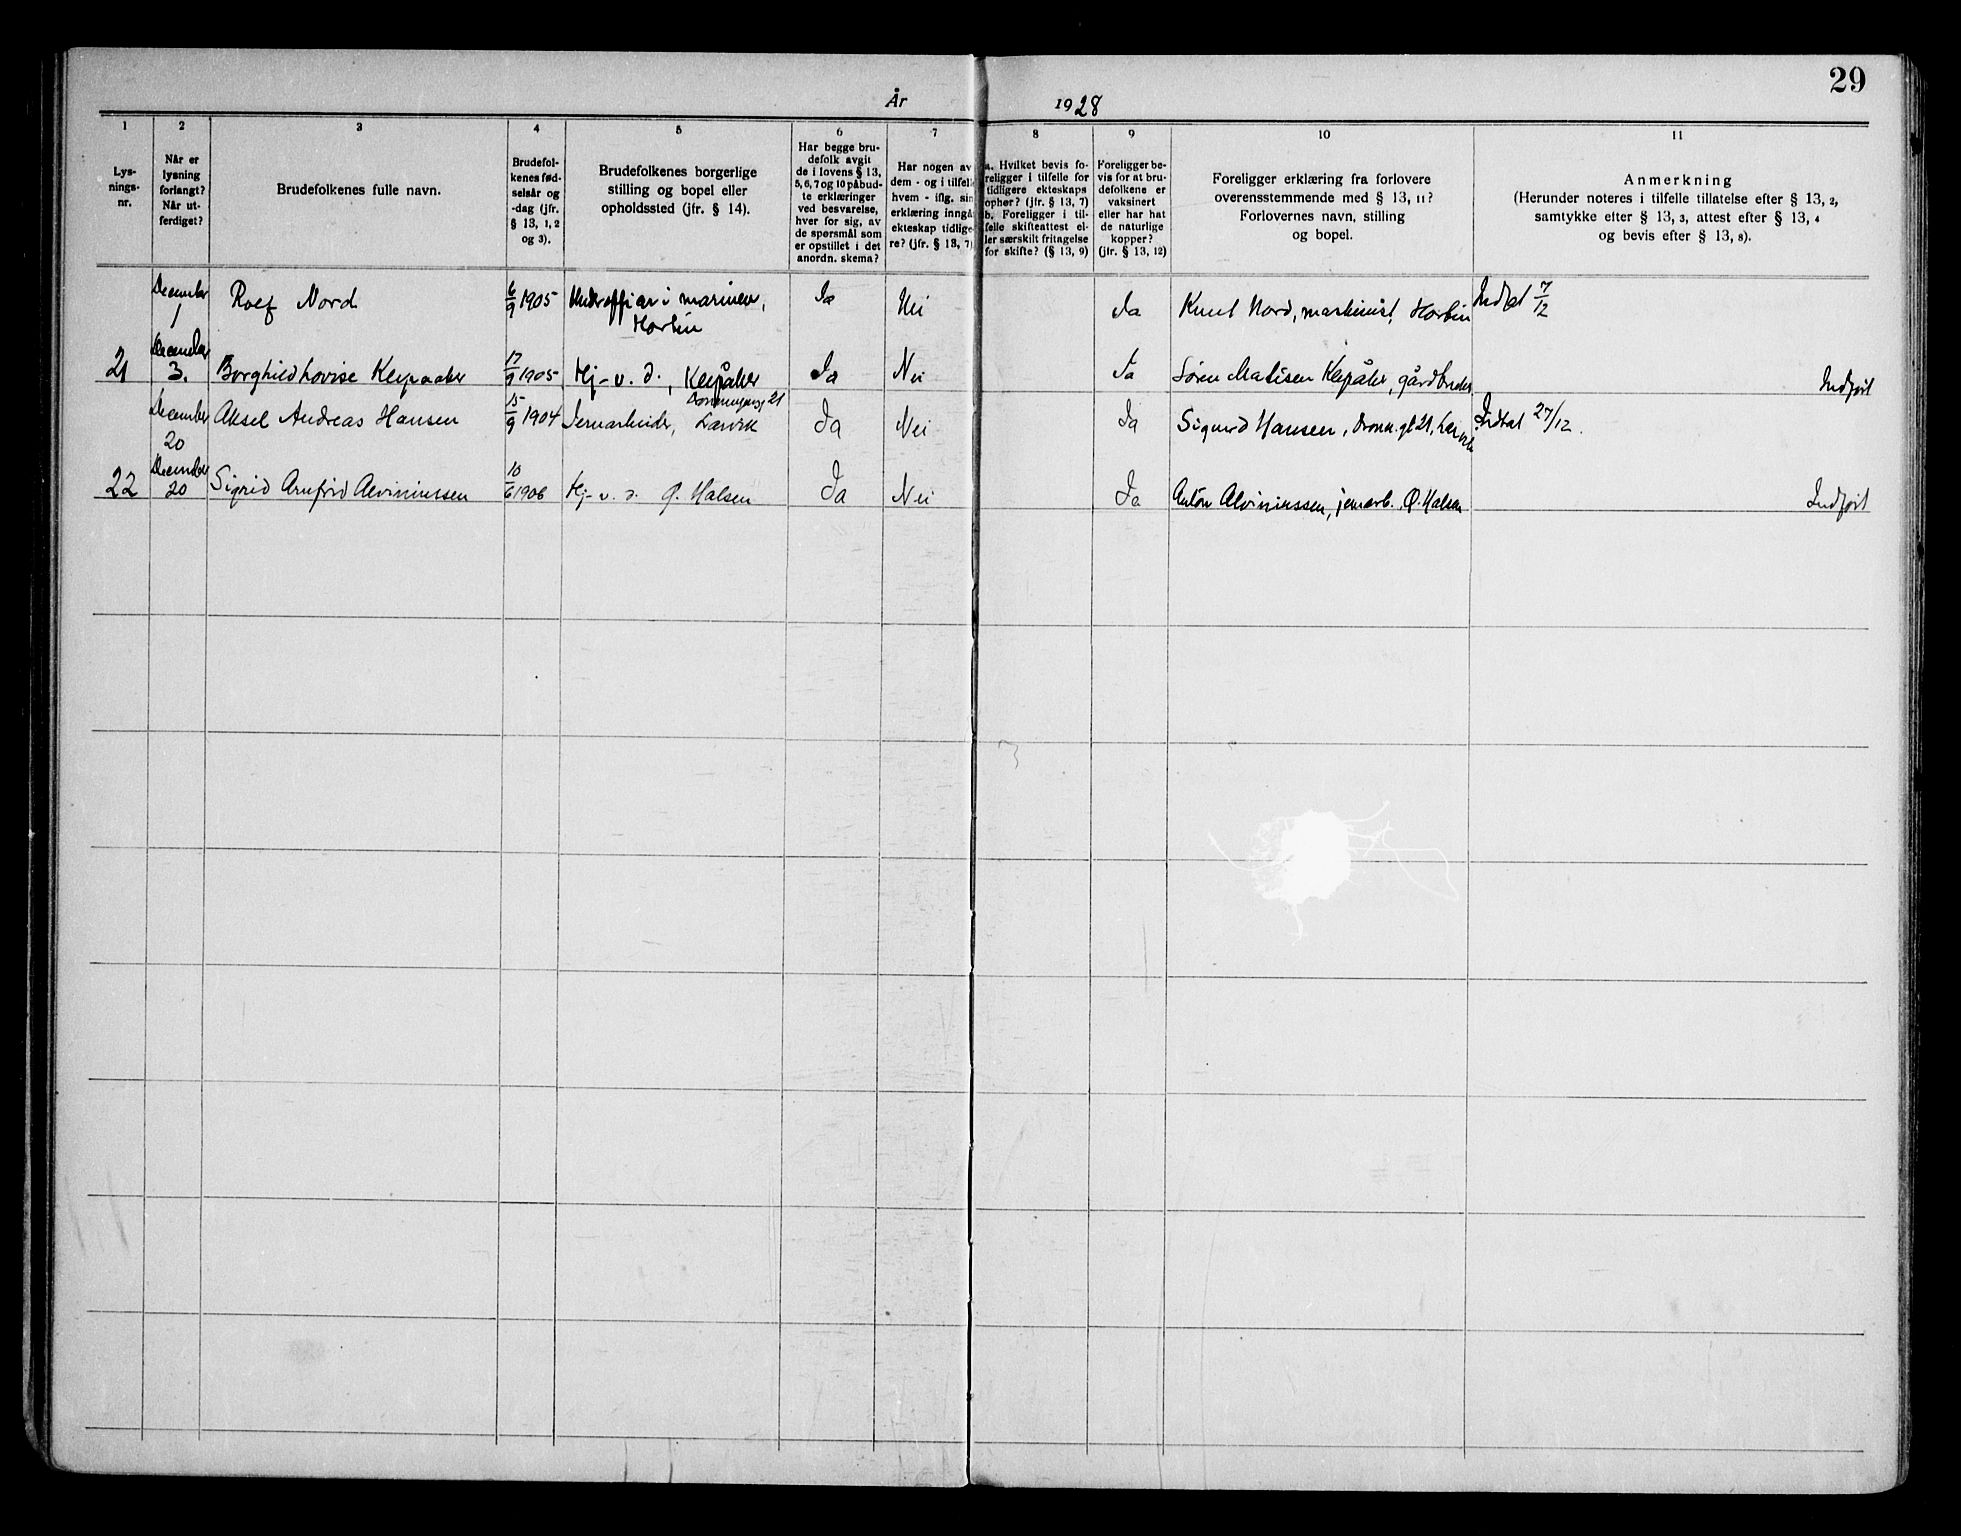 29
År 1928
1 2 3 4 5 6 7 8 9 10 11
Lys-
nings-
nr.
Når er
lysning
forlangt?
Når ut-
ferdiget?
Brudefolkenes fulle navn.
Brudefol-
kenes fød-
selsår og
-dag (jfr.
§ 13, 1, 2
og 3).
Brudefolkenes borgerlige
stilling og bopel eller
opholdssted (jfr. § 14).
Har begge bru-
defolk avgit
de i lovens § 13,
5, 6, 7 og 10 påbud-
te erklæringer
ved besvarelse,
hver for sig, av
de spørsmål som
er opstillet i det
anordn. skema?
Har nogen av
dem - og i tilfelle
hvem - iflg. sin
erklæring inngåt
ekteskap tidlige-
re? (jfr. § 13, 7)
a. Hvilket bevis fo-
religger i tilfelle for
tidligere ekteskaps
ophør? (jfr. § 13, 7)
b. Foreligger i til-
felle skifteattest el-
ler særskilt fritagelse
for skifte? (§ 13, 9)
Foreligger be-
vis for at bru-
defolkene er
vaksinert
eller har hat
de naturlige
kopper?
(jfr. § 13, 12)
Foreligger erklæring fra forlovere
overensstemmende med § 13, 11?
Forlovernes navn, stilling
og bopel.
Anmerkning
(Herunder noteres i tilfelle tillatelse efter § 13, 2,
samtykke efter § 13, 3, attest efter § 13, 4
og bevis efter § 13, 8).
December 1 Rolf Nord 6/9 1905 Underofficer i marinen, Ja Nei Ja Knut Nord, maskinist, Horten 7/12
Horten
21 December 3. Borghild Lovise Klepaaker 17/9 1905 Hj- v. d., Klepåker Ja Nei Ja Søren Matisen Klepåker, gårdbruker Indført
December 20 Aksel Andreas Hansen 15/9 1904 Jernarbeider, Larvik Ja Nei Ja Sigurd Hansen, Dronn. gt 21, Larvik 27/12.
22 December 20 Sigrid Arnfrid Alviniussen 10/6 1906 Hj- v. d. Ø. Halsen Ja Nei Ja Anton Alviniussen, jernarb. Ø. Halsen Indført